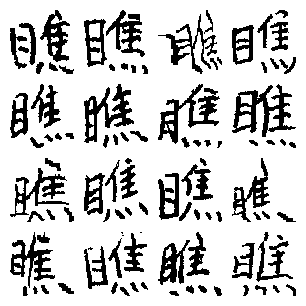 瞧瞧瞧瞧
瞧瞧瞧瞧
瞧瞧瞧瞧
瞧瞧瞧瞧